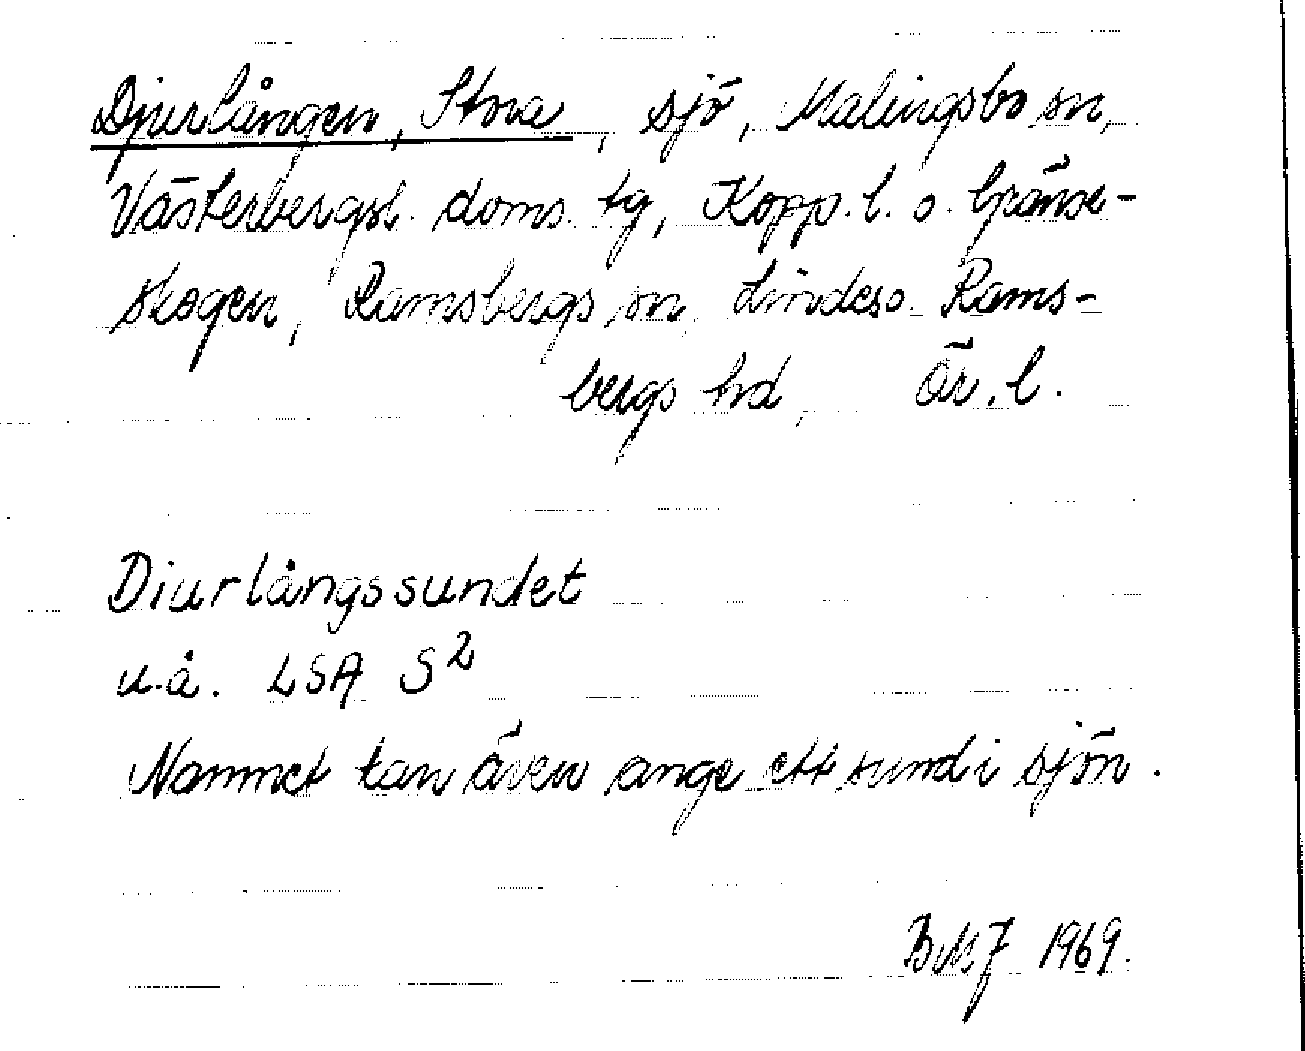 Djurlången, Stora, sjö, Malingsbo sn,
Västerbergsl. doms. tg, Kopp. l. o. Gränse-
skogen, Ramsbergs sn, Lindes o. Rams-
bergs hd, Ör. l.
Diurlångssundet
u.å. LSA S2
Namnet kan även ange ett sund i sjön.
BMJ 1969.